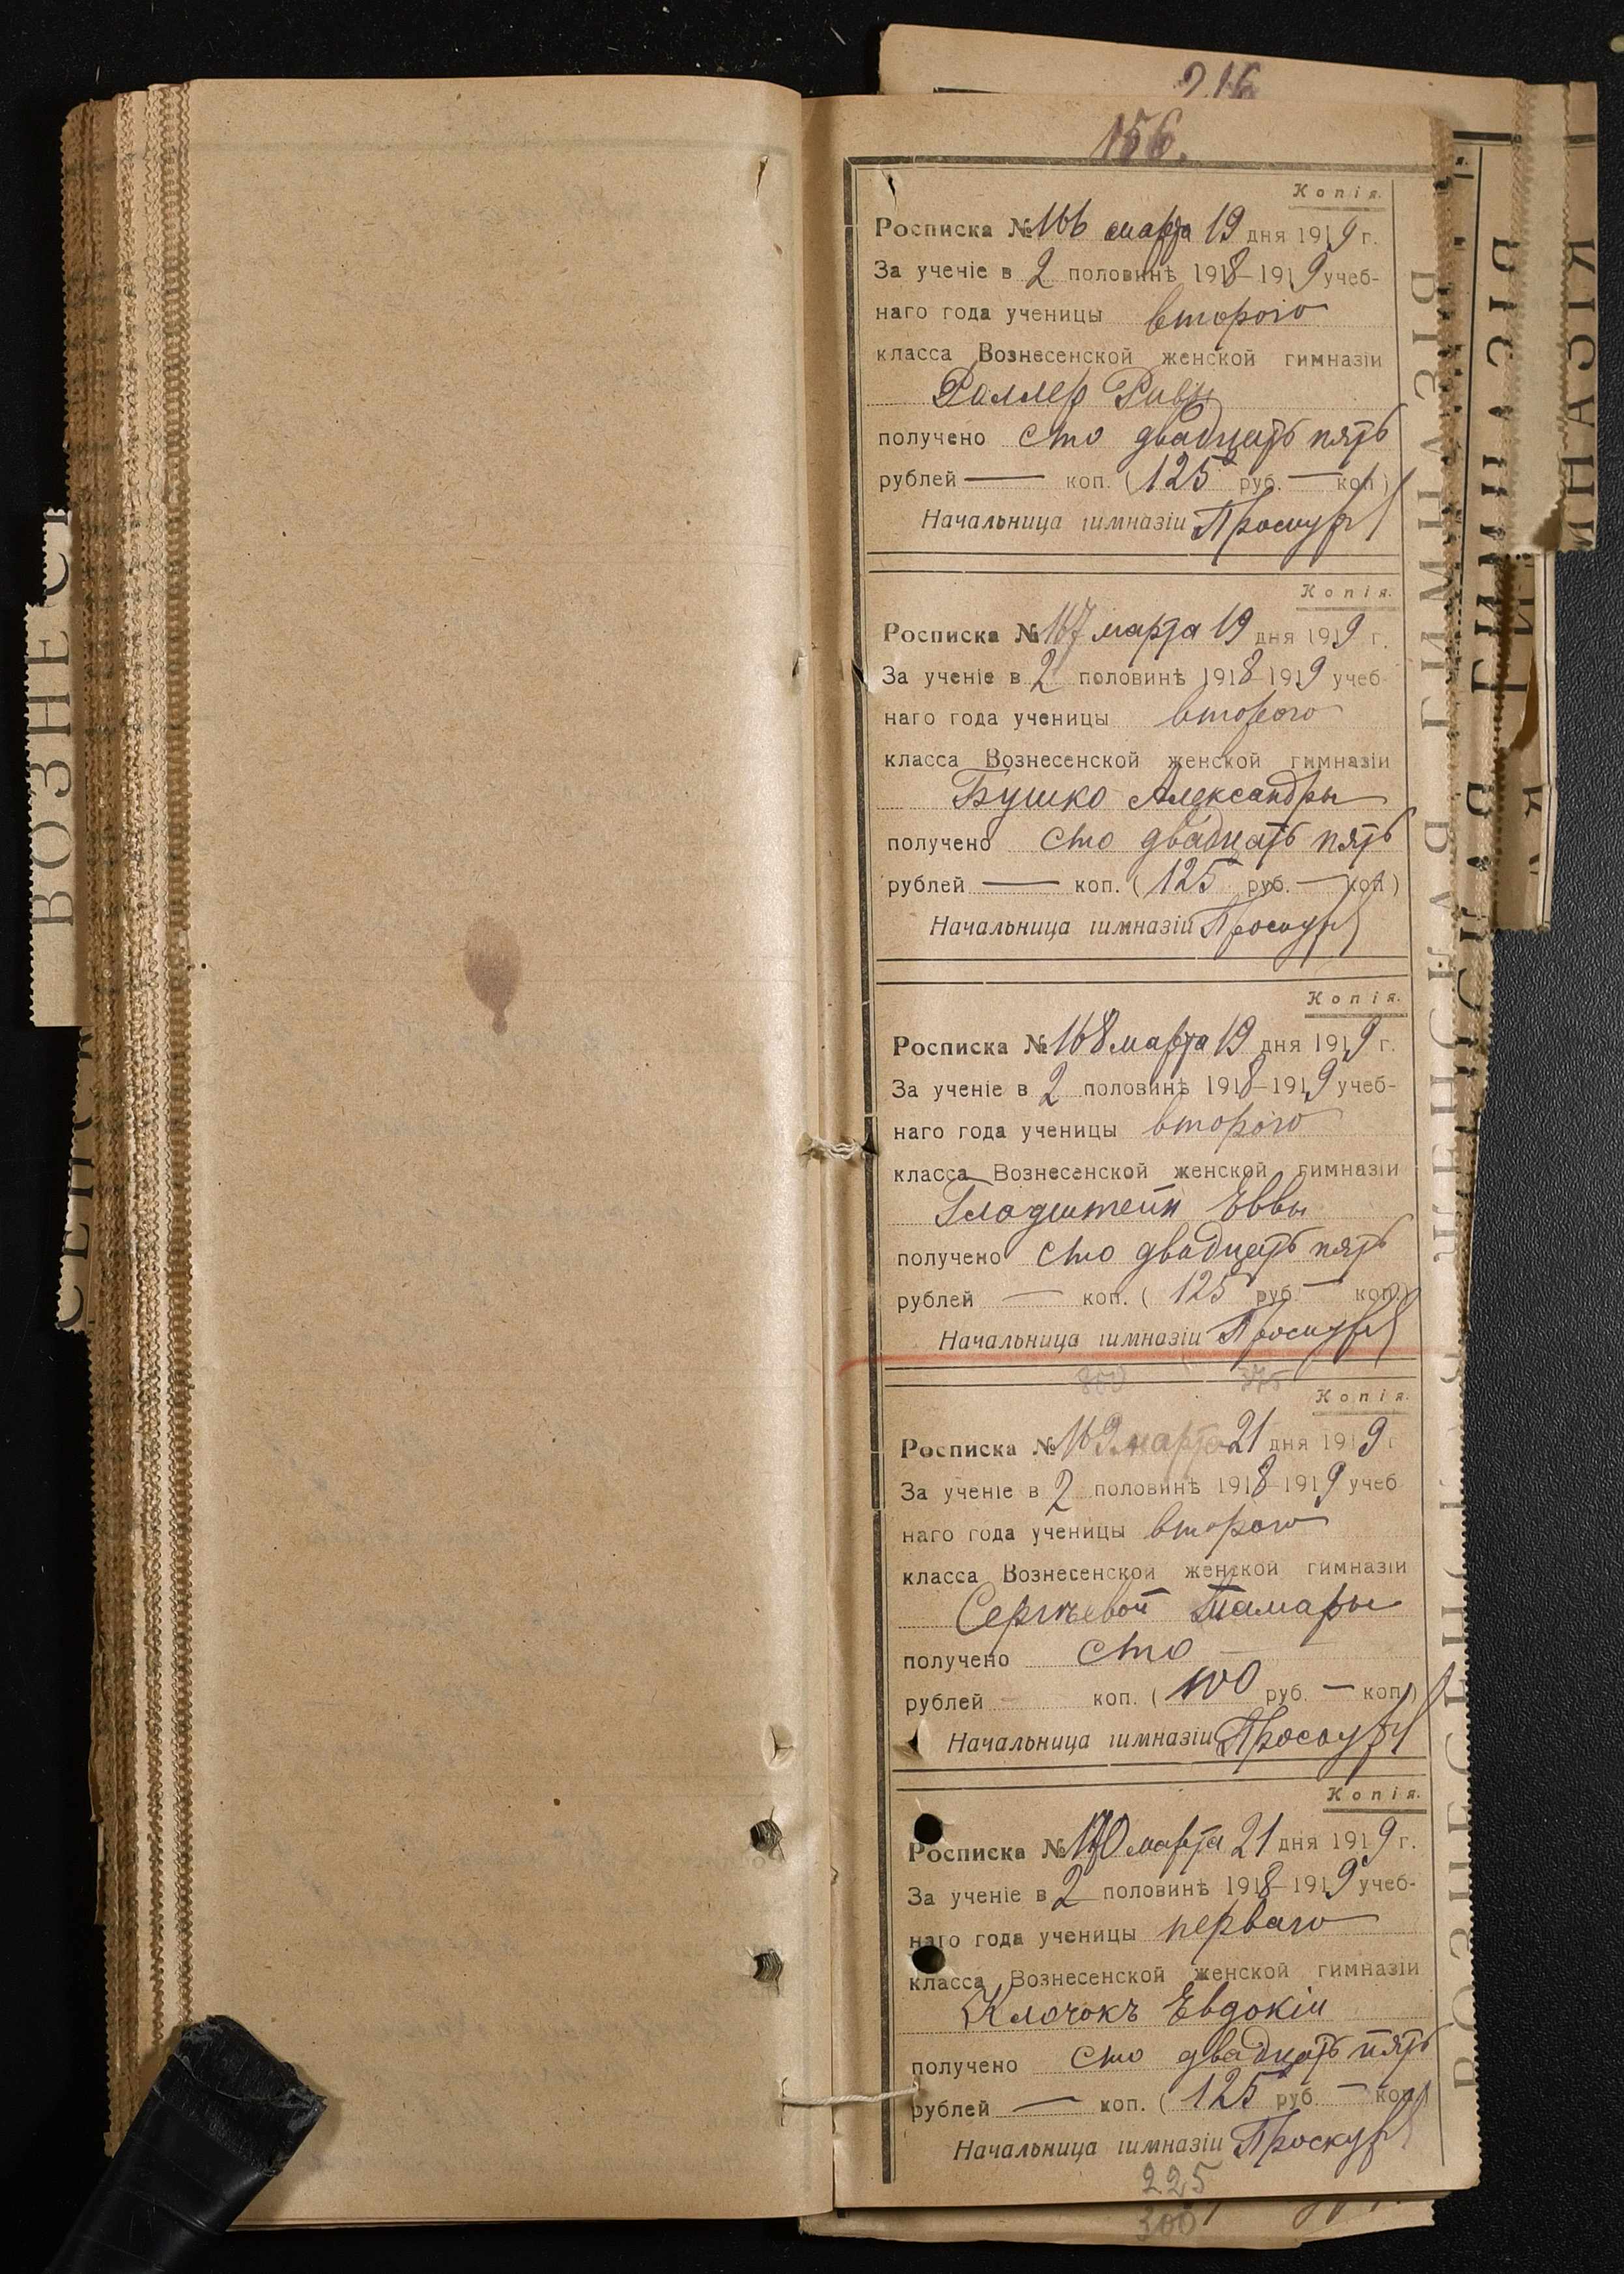 216
156.
Копія.
Росписка № 166 марта 19 дня 1919 г.
За ученіе в 2 половинѣ 1918-1919 учеб-
наго года ученицы второго
класса Вознесенской женской гимназіи
Раллер Ривы
получено сто двадцать пять
рублей — коп. (125 руб. — коп)
Начальница гимназіи Проскур
Копія.
Росписка № 167 марта 19 дня 1919 г.
За ученіе в 2 половинѣ 1918-1919 учеб-
наго года ученицы второго
класса Вознесенской женской гимназіи
Бушко Александры
получено сто двадцать пять
рублей — коп. (125 руб. — коп)
Начальница гимназіи Проскур
Копія.
Росписка № 168 марта 19 дня 1919 г.
За ученіе в 2 половинѣ 1918-1919 учеб-
наго года ученицы второго
класса Вознесенской женской гимназіи
Гладштейн Еввы
получено сто двадцать пять
рублей — коп. (125 руб. — коп.)
Начальница гимназіи Проскур
375
Копія.
Росписка № 169 марта 21 дня 1919 г
За ученіе в 2 половинѣ 1918-1919 учеб
наго года ученицы второго
класса Вознесенской женской гимназіи
Сергѣевой Тамары
получено сто —
рублей — коп. (100 руб. — коп.)
Начальница гимназіи Проскур
Копія.
Росписка № 170 марта 21 дня 1919 г.
За ученіе в 2 половинѣ 1918-1919 учеб-
наго года ученицы перваго
класса Вознесенской женской гимназіи
Клочокъ Евдокіи
получено сто двадцать пять
рублей — коп. (125 руб. — коп.)
Начальница гимназіи Проскур
225
300
ВОЗНЕС